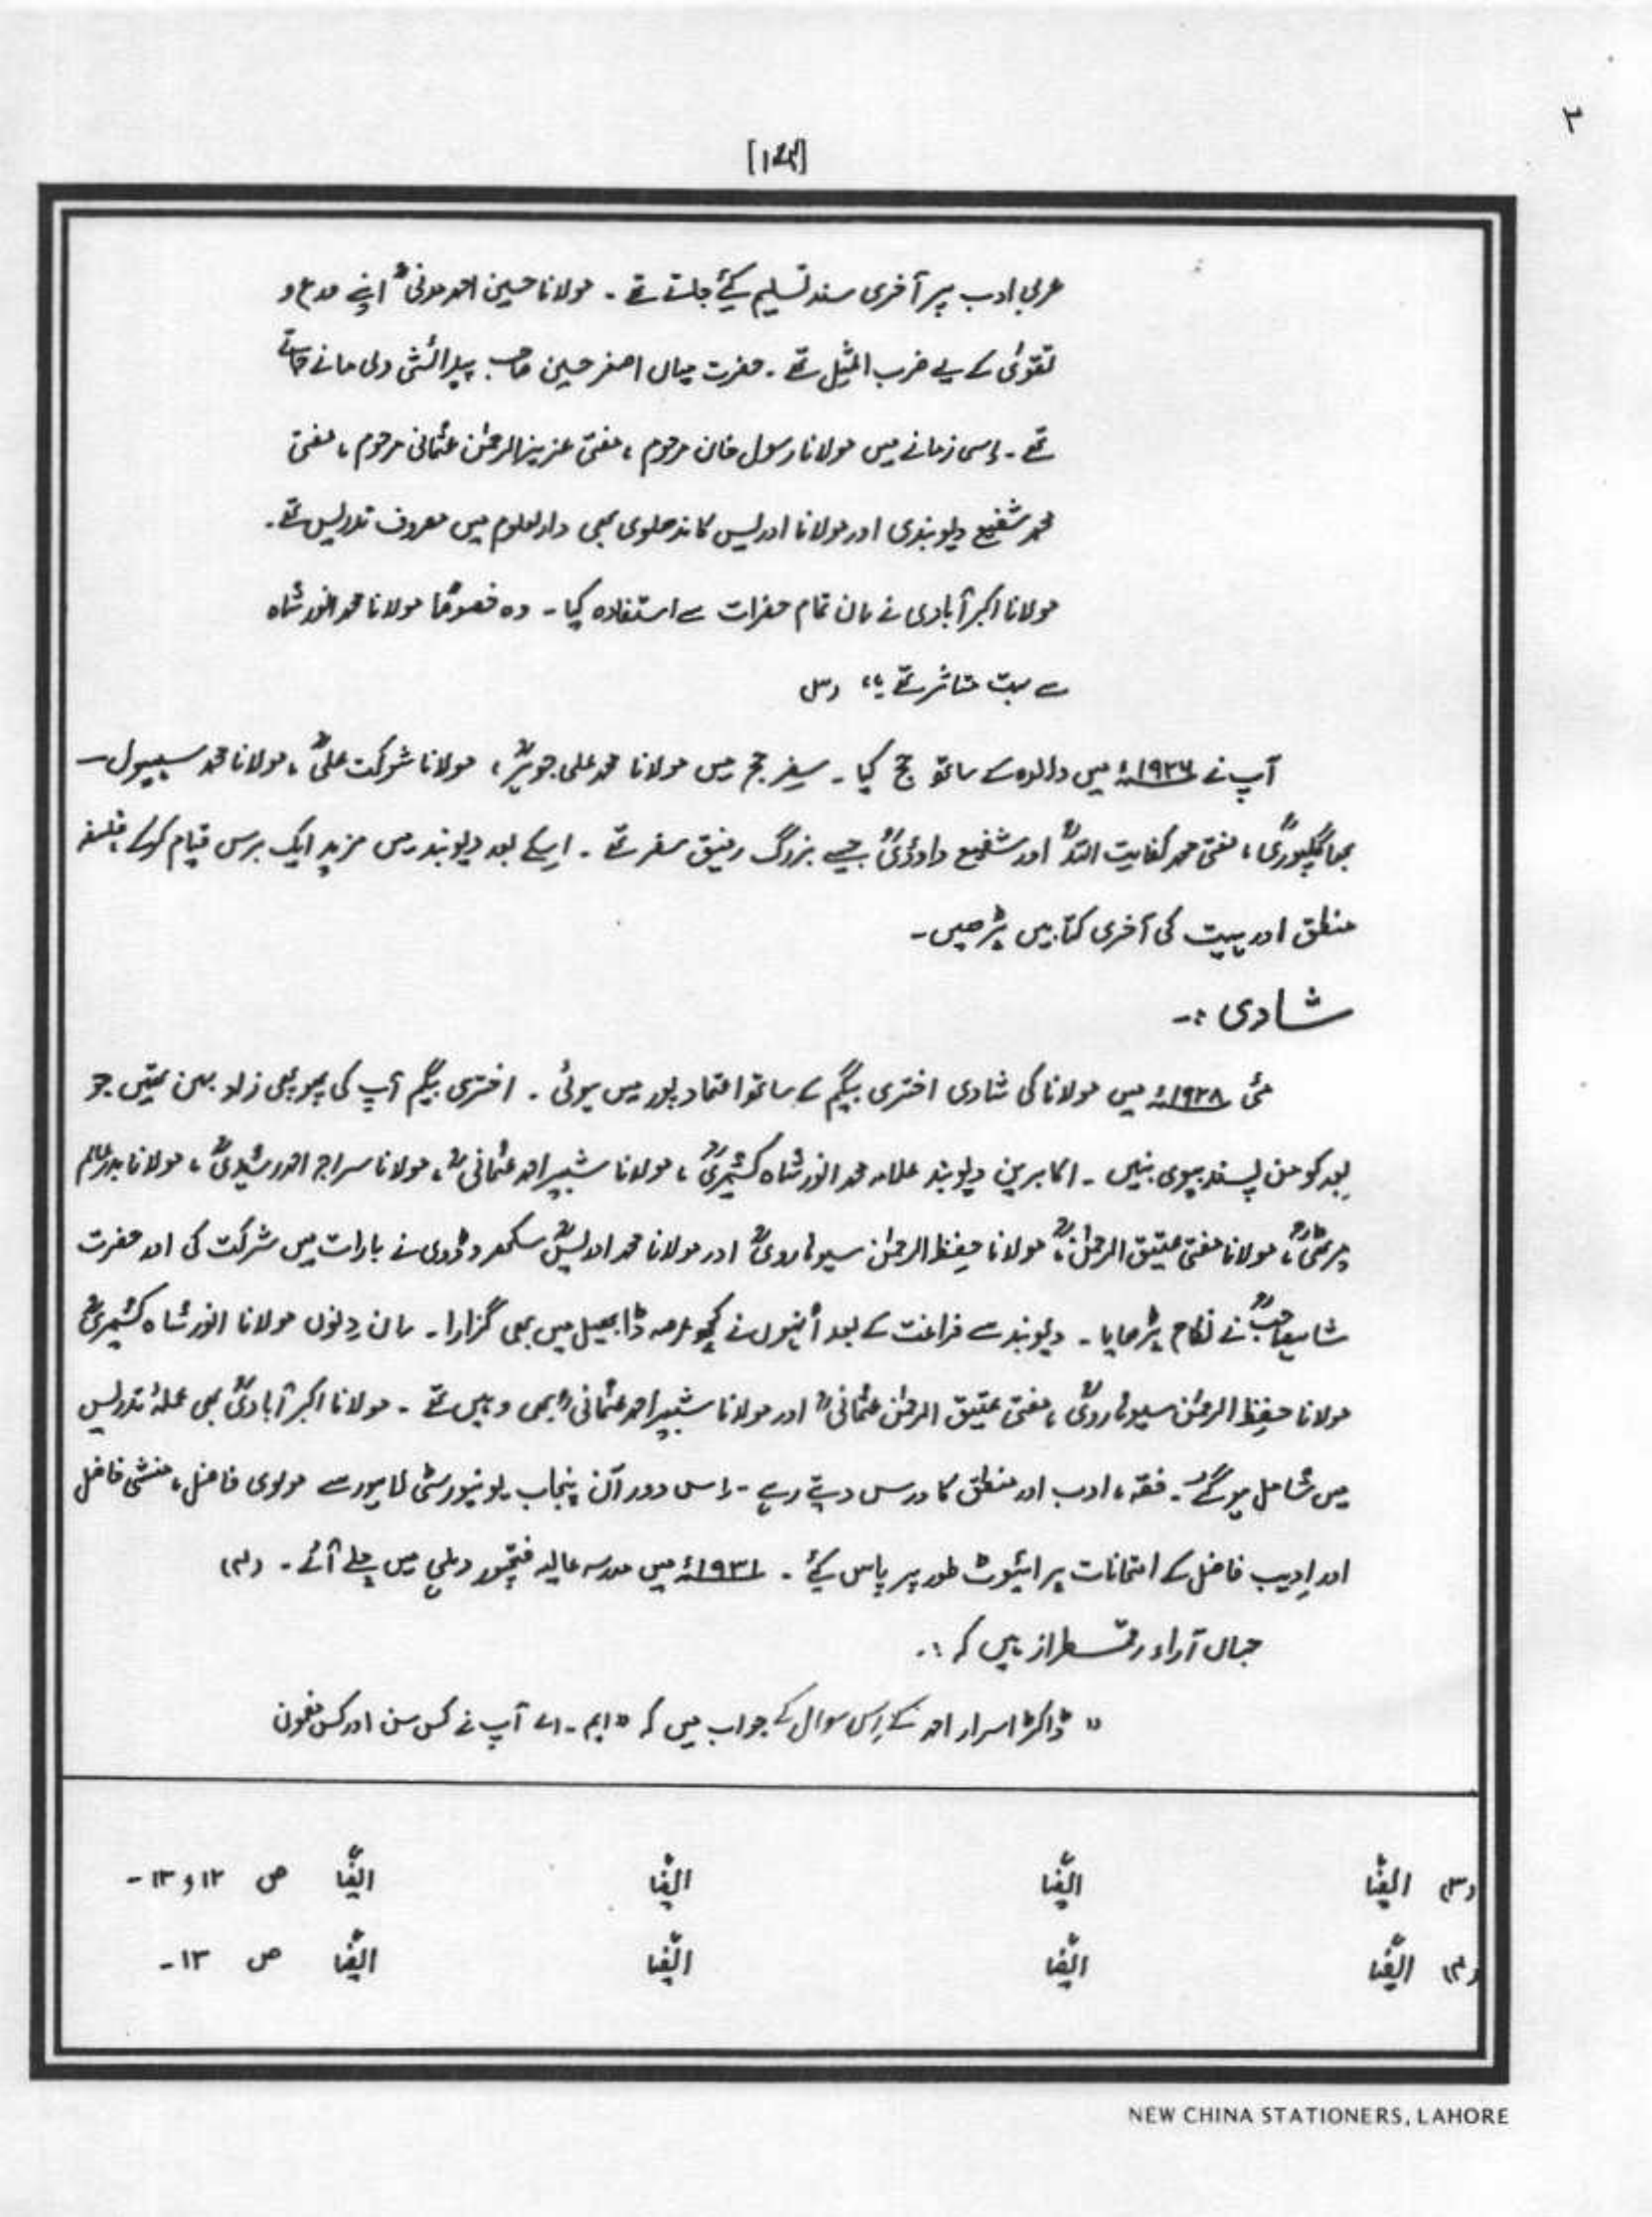 ۲
عربی ادب پر آخری سند تسلیم کیئے جاتے تھے ۔ مولانا حسین احمد مدنیؒ اپنے ورع و
تقویٰ کے لیے ضرب المثیل تھے ۔ حضرت میاں اصغر حسین صاحب پیدائشی ولی مانے جاتے
تھے ۔ اِسی زمانے میں مولانا رسول خان مرحوم ، مفتی عزیزالرحمٰن عثمانی مرحوم ، مفتی
محمد شفیع دیوبندی اور مولانا ادریس کاندھلوی بھی دارلعلوم میں مصروف تدریس تھے ۔
مولانا اکبر آبادی نے اِن تمام حضرات سے استفادہ کیا ۔ وہ خصوصًا مولانا محمد انور شاہ
سے بہت متاثر تھے ۔“ (۳)
آپ نے ۱۹۲۶ء میں والدہ کے ساتھ حج کیا ۔ سفرِ حج میں مولانا محمد علی جوہرؒ ، مولانا شوکت علیؒ ، مولانا محمد سہول
بھاگلپوریؒ ، مفتی محمد کفایت اللہؒ اور شفیع داؤدیؒ جیسے بزرگ رفیق سفر تھے ۔ اسکے بعد دیوبند میں مزید ایک برس قیام کر کے فلسفہ
منطق اور ہیت کی آخری کتابیں پڑھیں ۔
شادی :۔
مئی ۱۹۲۸ء میں مولانا کی شادی اختری بیگم کے ساتھ اعتماد پور میں ہوئی ۔ اختری بیگم آپ کی پھوپھی زاد بہن تھیں جو
بعد کو من پسند بیوی بنیں ۔ اکابرین دیوبند علامہ محمد انور شاہ کشمیریؒ ، مولانا شبیر احمد عثمانیؒ ، مولانا سراج احمد رشیدیؒ ، مولانا بدر عالم
میرٹھیؒ ، مولانا مفتی عتیق الرحمٰنؒ ، مولانا حفِظ الرحمٰن سیوہارویؒ اور مولانا محمد ادریسؒ سکھروڈوی نے بارات میں شرکت کی اور حضرت
شاہصاحبؒ نے نکاح پڑھایا ۔ دیوبند سے فراغت کے بعد اُنہوں نے کچھ عرصہ ڈابھیل میں بھی گزارا ۔ اِن دِنوں مولانا انور شاہ کشمیریؒ
مولانا حفِظ الرحمٰن سیوہارویؒ ، مفتی عتیق الرحمٰن عثمانیؒ اور مولانا شبیر احمد عثمانیؒ بھی وہیں تھے ۔ مولانا اکبر آبادیؒ بھی عملۂ تدریس
میں شامل ہو گئے ۔ فقہ ، ادب اور منطق کا درس دیتے رہے ۔ اِس دور آن پنجاب یونیورسٹی لاہور سے مولوی فاضل ، منشی فاضل
اور ادیب فاضل کے امتحانات پرائیوٹ طور پر پاس کیئے ۔ ۱۹۳۱ء میں مدرسہ عالیہ فتحپور دہلی میں چلے آئے ۔ (۴)
جہاں آراء رقمطراز ہیں کہ :۔
” ڈاکٹر اسرار احمد کے اِس سوال کے جواب میں کہ ” ایم ۔ اے آپ نے کس سن اور کس مضمون
(۳) ایضًا ایضًا ایضًا ایضًا ص ۱۲ و ۱۳ ۔
(۴) ایضًا ایضًا ایضًا ایضًا ص ۱۳ ۔
NEW CHINA STATIONERS, LAHORE